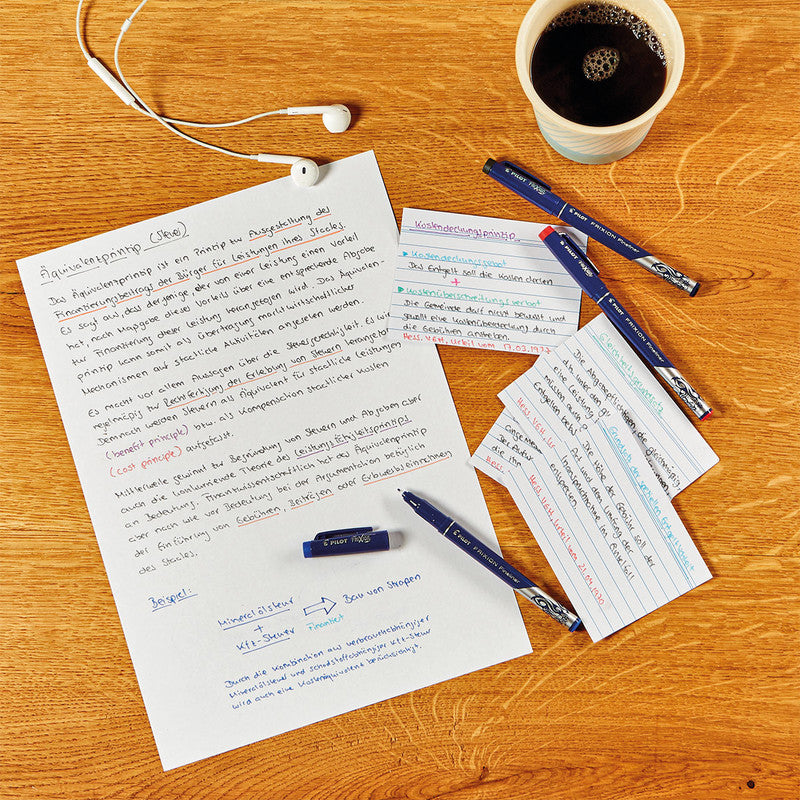 Äquivalenzprinzip (Steuer)
Das Äquivalenzprinzip ist ein Prinzip zur Ausgestaltung des
Finanzierungsbeitrags der Bürger für Leistungen ihres Staates.
Es sagt aus, dass derjenige der von einer Leistung einen Vorteil
hat, nach Maßgabe dieses Vorteils über eine entsprechende Abgabe
zur Finanzierung dieser Leistung herangezogen wird. Das Äquivalenz-
prinzip kann somit als Übertragung marktwirtschaftlicher
Mechanismen auf staatliche Aktivitäten angesehen werden.
Es macht vor allem Aussagen über die Steuergerechtigkeit. Es wird
regelmäßig zur Rechtfertigung der Erhebung von Steuern herangezogen
Demnach werden Steuern als Äquivalent für staatliche Leistungen
(benefit principle) bzw. als Kompensation staatlicher Kosten
(cost principle) aufgefasst.
Mittlerweile gewinnt zur Begründung von Steuern und Abgaben aber
auch die konkurrierende Theorie des Leistungsfähigkeitsprinzips
an Bedeutung. Finanzwissenschaftlich hat das Äquivalenzprinzip
aber nach wie vor Bedeutung bei der Argumentation bezüglich
der Einführung von Gebühren, Beiträgen oder Erwerbseinnahmen
des Staates.
Beispiel:
Mineralölsteuer
+
Kfz-Steuer
Finanziert
Bau von Straßen
Durch die Kombination aus verbrauchsabhängiger
Mineralölsteuer und schadstoffabhängiger Kfz-Steuer
wird auch eine Kostenäquivalenz berücksichtigt.
Kostendeckungsprinzip
Kostendeckungsgebot
Das Entgelt soll die Kosten decken
+
Kostenüberschreitungsverbot
Die Gemeinde darf nicht bewusst und
gewollt eine Kostenüberdeckung durch
die Gebühren anstreben.
Hess. VGH, Urteil vom 17.03.1977
Die Abgabepflichtigen, die gleichmäßig
eine Leistung
müssen auch
Entgelten
Hess. VGH, Ur
Die Höhe der Gebühr soll der
Art und dem Umfang der
Inanspruchnahme im Einzelfall
entsprechen
Hess. VGH, Urteil vom 21.04.1970
PILOT
FRIXION Fineliner
PILOT
FRIXION Fineliner
PILOT
PILOT FRIXION Fineliner